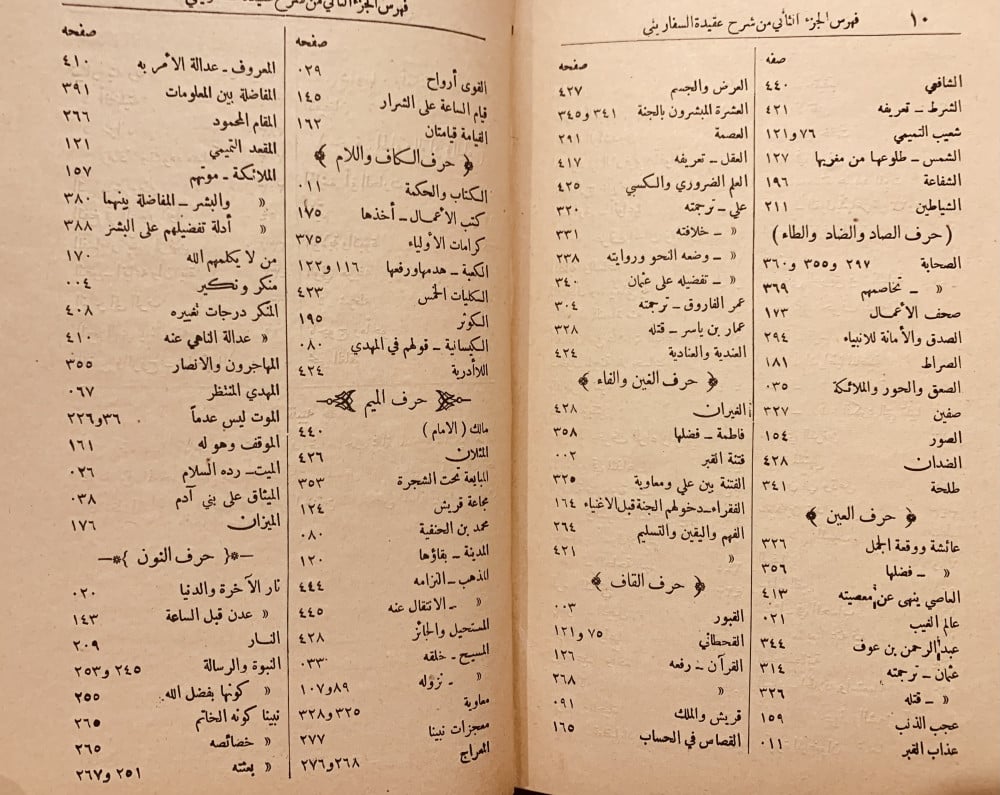 ١٠ فهرس الجزء الثاني من شرح عقيدة السفاريني
صفه
الشافعي ٤٤٠
الشرط ــ تعريفه ٤٢١
شعيب التميمي ٧٦ و١٢١
الشمس ــ طلوعها من مغربها ١٢٧
الشفاعة ١٩٦
الشياطين ٢١١
(حرف الصاد والضاد والطاء)
الصحابة ٢٩٧ و٣٥٥ و٣٦٠
« ــ تخاصمهم ٣٦٩
صحف الأعمال ١٧٣
الصدق والأمانة للانبياء ٢٩٤
الصراط ١٨١
الصعق والحور والملائكة ٠٣٥
صفين ٣٢٧
الصور ١٥٤
الضدان ٤٢٨
طلحة ٣٤١
﴿ حرف العين ﴾
عائشة ووقعة الجمل ٣٢٦
« ــ فضلها ٣٥٦
العاصي ينهى عن معصيته ٤١٣
عالم الغيب ٠٢١
عبد الرحمن بن عوف ٣٤٤
عثمان ــ ترجمته ٣١٤
« ــ قتله ٣٢٦
عجب الذنب ١٥٩
عذاب القبر ٠١١
صفحه
العرض والجسم ٤٢٧
العشرة المبشرون بالجنة ٣٤١ و٣٤٥
العصمة ٢٩١
العقل ــ تعريفه ٤١٧
العلم الضروري والكسبي ٤٢٥
علي ــ ترجمته ٣٢٠
« ــ خلافته ٣٣١
« ــ وضعه النحو وروايته ٢٣٨
« ــ تفضيله على عثمان ٣٤٠
عمر الفاروق ــ ترجمته ٣٠٤
عمار بن ياسر ــ قتله ٣٢٨
العندية والعنادية ٤٢٤
﴿ حرف الغين والفاء ﴾
الغيران ٤٢٨
فاطمة ــ فضلها ٣٥٨
فتنة القبر ٠٠٢
الفتنة بين علي ومعاوية ٣٢٥
الفقراء ــ دخولهم الجنة قبل الاغنياء ١٦٤
الفهم واليقين والتسليم ٢٦٤
« ٤٢١
﴿ حرف القاف ﴾
القبور ٠٠٣
القحطاني ٧٥ و١٢١
القرآن ــ رفعه ١٢٦
« ٢٦٨
قريش والملك ٠٩١
القصاص في الحساب ١٦٥
فهرس الجزء الثاني من شرح عقيدة السفاريني
صفحه
القوى أرواح ٠٢٩
قيام الساعة على الشرار ١٤٥
القيامة قيامتان ١٦٢
﴿ حرف الكاف واللام ﴾
الكتاب والحكمة ٠١١
كتب الأعمال ــ أخذها ١٧٥
كرامات الأولياء ٣٧٥
الكعبة ــ هدمها ورفعها ١١٦ و١٢٢
الكليات الخمس ٤٢٣
الكوثر ١٩٥
الكيسانية ــ قولهم في المهدي ٠٨٠
اللاأدرية ٤٢٤
حرف الميم
مالك (الامام) ٤٤٠
المثلان ٤٢٦
المبايعة تحت الشجرة ٣٥٣
مجاعة قريش ١٢٤
محمد بن الحنفية ٠٨٠
المدينة ــ بقاؤها ١٢٠
المذهب ــ التزامه ٤٤٤
« ــ الانتقال عنه ٤٤٥
المستحيل والجائز ٤٢٨
المسيح ــ خلقه ٠٣٣
« ــ نزوله ٨٩ و١٠٧
معاوية ٣٢٥ و٣٢٨
معجزات نبينا ٢٧٧
المعراج ٢٦٨ و٢٧٦
صفحه
المعروف ــ عدالة الأمر به ٤١٠
المفاضلة بين المعلومات ٣٩١
المقام المحمود ٢٦٦
المقعد التميمي ١٢١
الملائكة ــ موتهم ١٥٧
« والبشر ــ المفاضلة بينهما ٣٨٠
« أدلة تفضيلهم على البشر ٣٨٨
من لا يكلمهم الله ١٧٠
منكر ونكير ٠٠٤
المنكر درجات تغييره ٤٠٨
« عدالة الناهي عنه ٤١٠
المهاجرون والانصار ٣٥٥
المهدي المنتظر ٠٦٧
الموت ليس عدماً ٣٦ و٢٢٦
الموقف وهوله ١٦١
الميت ــ رده السلام ٠٢٦
الميثاق على بني آدم ٠٣٨
الميزان ١٧٦
﴿ حرف النون ﴾
نار الآخرة والدنيا ٠٢٠
« عدن قبل الساعة ١٤٣
النار ٢٠٩
النبوة والرسالة ٢٤٥ و٢٥٣
« كونها بفضل الله ٢٥٥
نبينا كونه الخاتم ٢٦٥
« خصائصه ٢٦٥
« بعثته ٢٥١ و٢٦٧